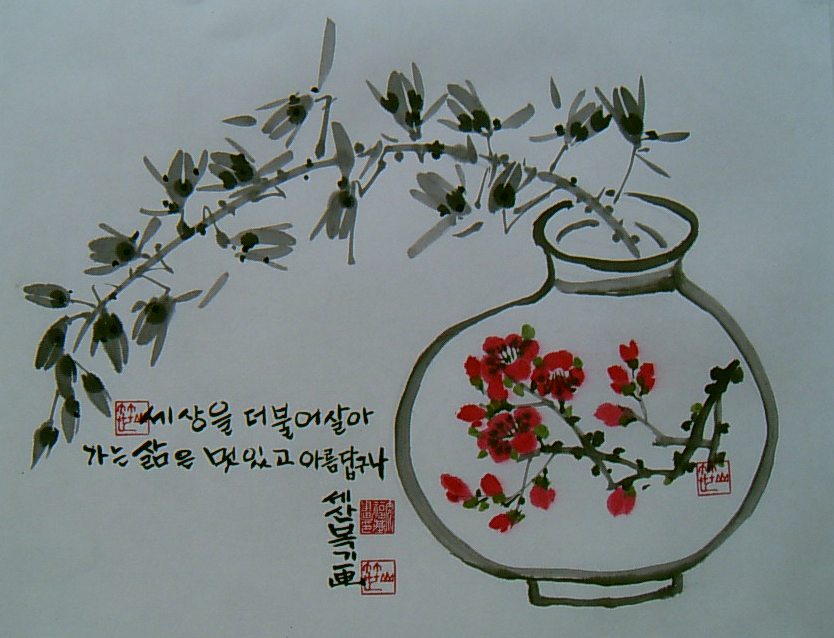 세상을 더불어살아
가는 삶은 멋있고 아름답구나
세산복기画